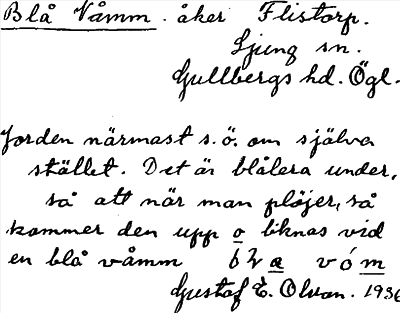 Blå Våmm. åker Flistorp.
Ljung sn.
Gullbergs hd. Ögl.
Jorden närmast s.ö. om själva
stället. Det är blålera under,
så att när man plöjer, så
kommer den upp o liknas vid
en blå våmm
Gustaf E. Olson. 1936